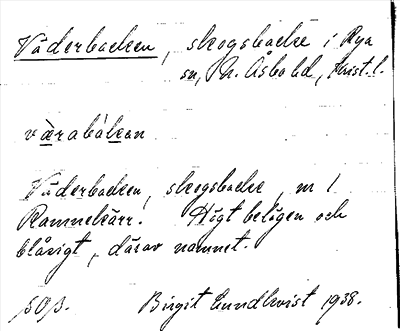 Väderbacken, skogsbacke i Rya
sn, N. Åsbo hd, Krist. l.
væ̀rabákan
Väderbacken, skogsbacke, m /
Ramnekärr. Högt belägen och
blåsigt, därav namnet.
Birgit Lundkvist 1938.